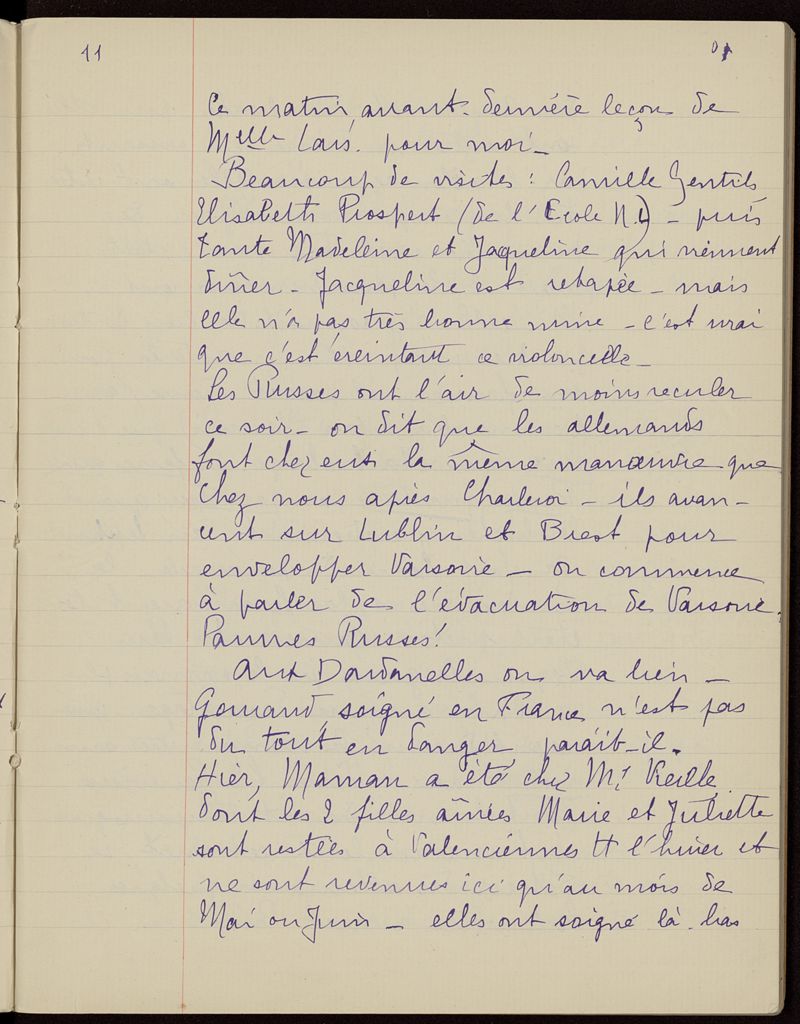 11
Ce matin, avant-dernière leçon de
Melle Laïs. pour moi_
Beaucoup de visites : Camille Gentils
Elisabeth Prospert (de l'Ecole N.) – puis
tante Madeleine et Jacqueline qui viennent
dîner – Jacqueline est retapée – mais
elle n'a pas très bonne mine – c'est vrai
que c'est éreintant ce violoncelle_
Les Russes ont l'air de moins reculer
ce soir – on dit que les allemands
font chez eux la même manœuvre que
chez nous après Charleroi – ils avan-
cent sur Lublin et Brest pour
envelopper Varsovie – on commence
à parler de l'évacuation de Varsovie.
Pauvres Russes!
Aux Dardanelles on va bien –
Gouraud, soigné en France n'est pas
du tout en danger paraît-il.
Hier, Maman a été chez Mr Vieille
dont les 2 filles aînées Marie et Juliette
sont restées à Valenciennes tt l'hiver et
ne sont revenues ici qu'au mois de
Mai ou Juin – elles ont soigné là-bas